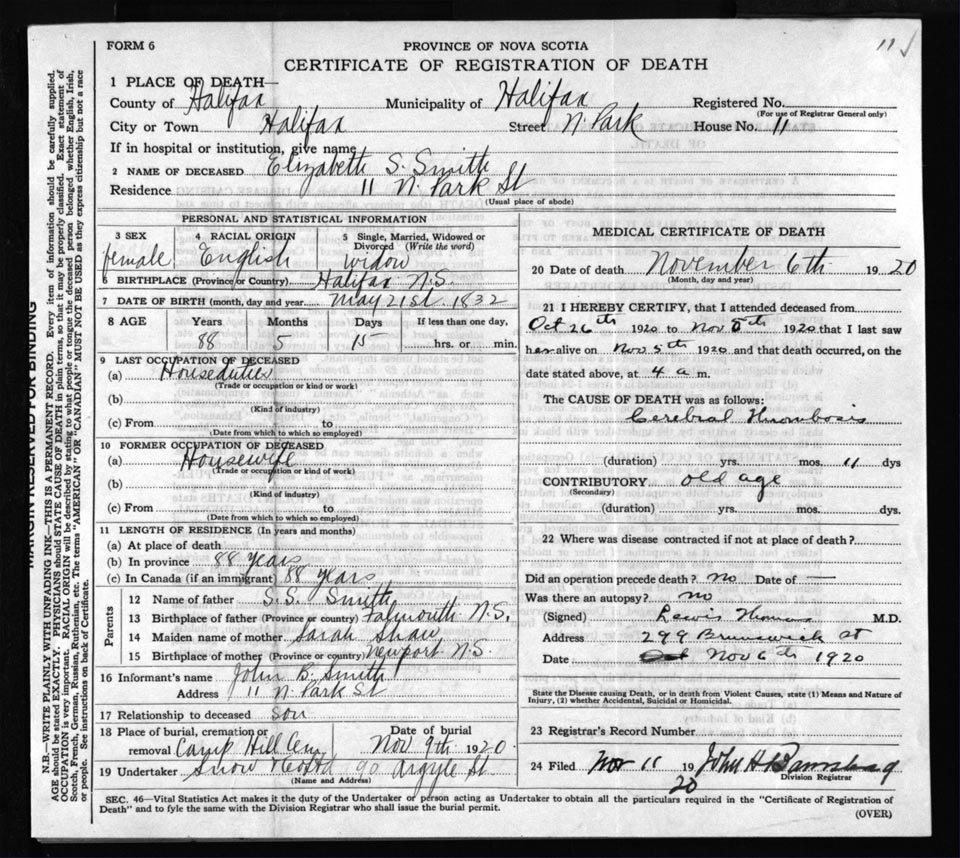 11 ✓
FORM 6
PROVINCE OF NOVA SCOTIA
CERTIFICATE OF REGISTRATION OF DEATH
1 PLACE OF DEATH—
County of Halifax Municipality of Halifax Registered No.
(For use of Registrar General only)
City or Town Halifax Street N. Park House No. 11
If in hospital or institution, give name
2 NAME OF DECEASED Elizabeth S. Smith
Residence 11 N. Park St
(Usual place of abode)
PERSONAL AND STATISTICAL INFORMATION
3 SEX 4 RACIAL ORIGIN 5 Single, Married, Widowed or Divorced (Write the word)
female English widow
6 BIRTHPLACE (Province or Country) Halifax N.S.
7 DATE OF BIRTH (month, day and year) May 21st 1832
8 AGE Years Months Days If less than one day,
88 5 15 hrs. or min.
9 LAST OCCUPATION OF DECEASED
(a) Houseduties
(Trade or occupation or kind or work)
(b)
(Kind of industry)
(c) From to
(Date from which to which so employed)
10 FORMER OCCUPATION OF DECEASED
(a) Housewife
(Trade or occupation or kind of work)
(b)
(Kind of industry)
(c) From to
(Date from which to which so employed)
11 LENGTH OF RESIDENCE (In years and months)
(a) At place of death
(b) In province 88 years
(c) In Canada (if an immigrant) 88 years
Parents
12 Name of father S.S. Smith
13 Birthplace of father (Province or country) Falmouth N.S.
14 Maiden name of mother Sarah Shaw
15 Birthplace of mother (Province or country) Newport N.S.
16 Informant's name John B. Smith
Address 11 N. Park St
17 Relationship to deceased son
18 Place of burial, cremation or removal Camp Hill Cem Date of burial Nov 9th 1920.
19 Undertaker Snow 90 Argyle St.
(Name and Address)
MEDICAL CERTIFICATE OF DEATH
20 Date of death November 6th 1920
(Month, day and year)
21 I HEREBY CERTIFY, that I attended deceased from
Oct 26th 1920 to Nov 6th 1920 that I last saw
her alive on Nov 5th 1920 and that death occurred, on the
date stated above, at 4 a m.
The CAUSE OF DEATH was as follows:
Cerebral Thrombosis
(duration) yrs. mos. 11 dys
CONTRIBUTORY old age
(Secondary)
(duration) yrs. mos. dys.
22 Where was disease contracted if not at place of death?
Did an operation precede death? no Date of —
Was there an autopsy? no
(Signed) Lewis Thomas M.D.
Address 299 Brunswick St
Date Oct Nov 6th 1920
State the Disease causing Death, or in death from Violent Causes, state (1) Means and Nature of
Injury, (2) whether Accidental, Suicidal or Homicidal.
23 Registrar's Record Number
24 Filed Nov 11 1920 John H
Division Registrar
SEC. 46—Vital Statistics Act makes it the duty of the Undertaker or person acting as Undertaker to obtain all the particulars required in the "Certificate of Registration of
Death" and to fyle the same with the Division Registrar who shall issue the burial permit.
(OVER)
MARGIN RESERVED FOR BINDING
N.B.—WRITE PLAINLY WITH UNFADING INK—THIS IS A PERMANENT RECORD. Every item of information should be carefully supplied.
AGE should be stated EXACTLY. PHYSICIANS should STATE CAUSE OF DEATH in plain terms, so that it may be properly classified. Exact statement of
OCCUPATION is very important. RACIAL ORIGIN will be described by stating to what people or tongue the deceased person belonged whether English, Irish,
Scotch, French, German, Russian, Ruthenian, etc. The terms "AMERICAN" OR "CANADIAN" MUST NOT BE USED as they express citizenship but not a race
or people. See instructions on back of Certificate.